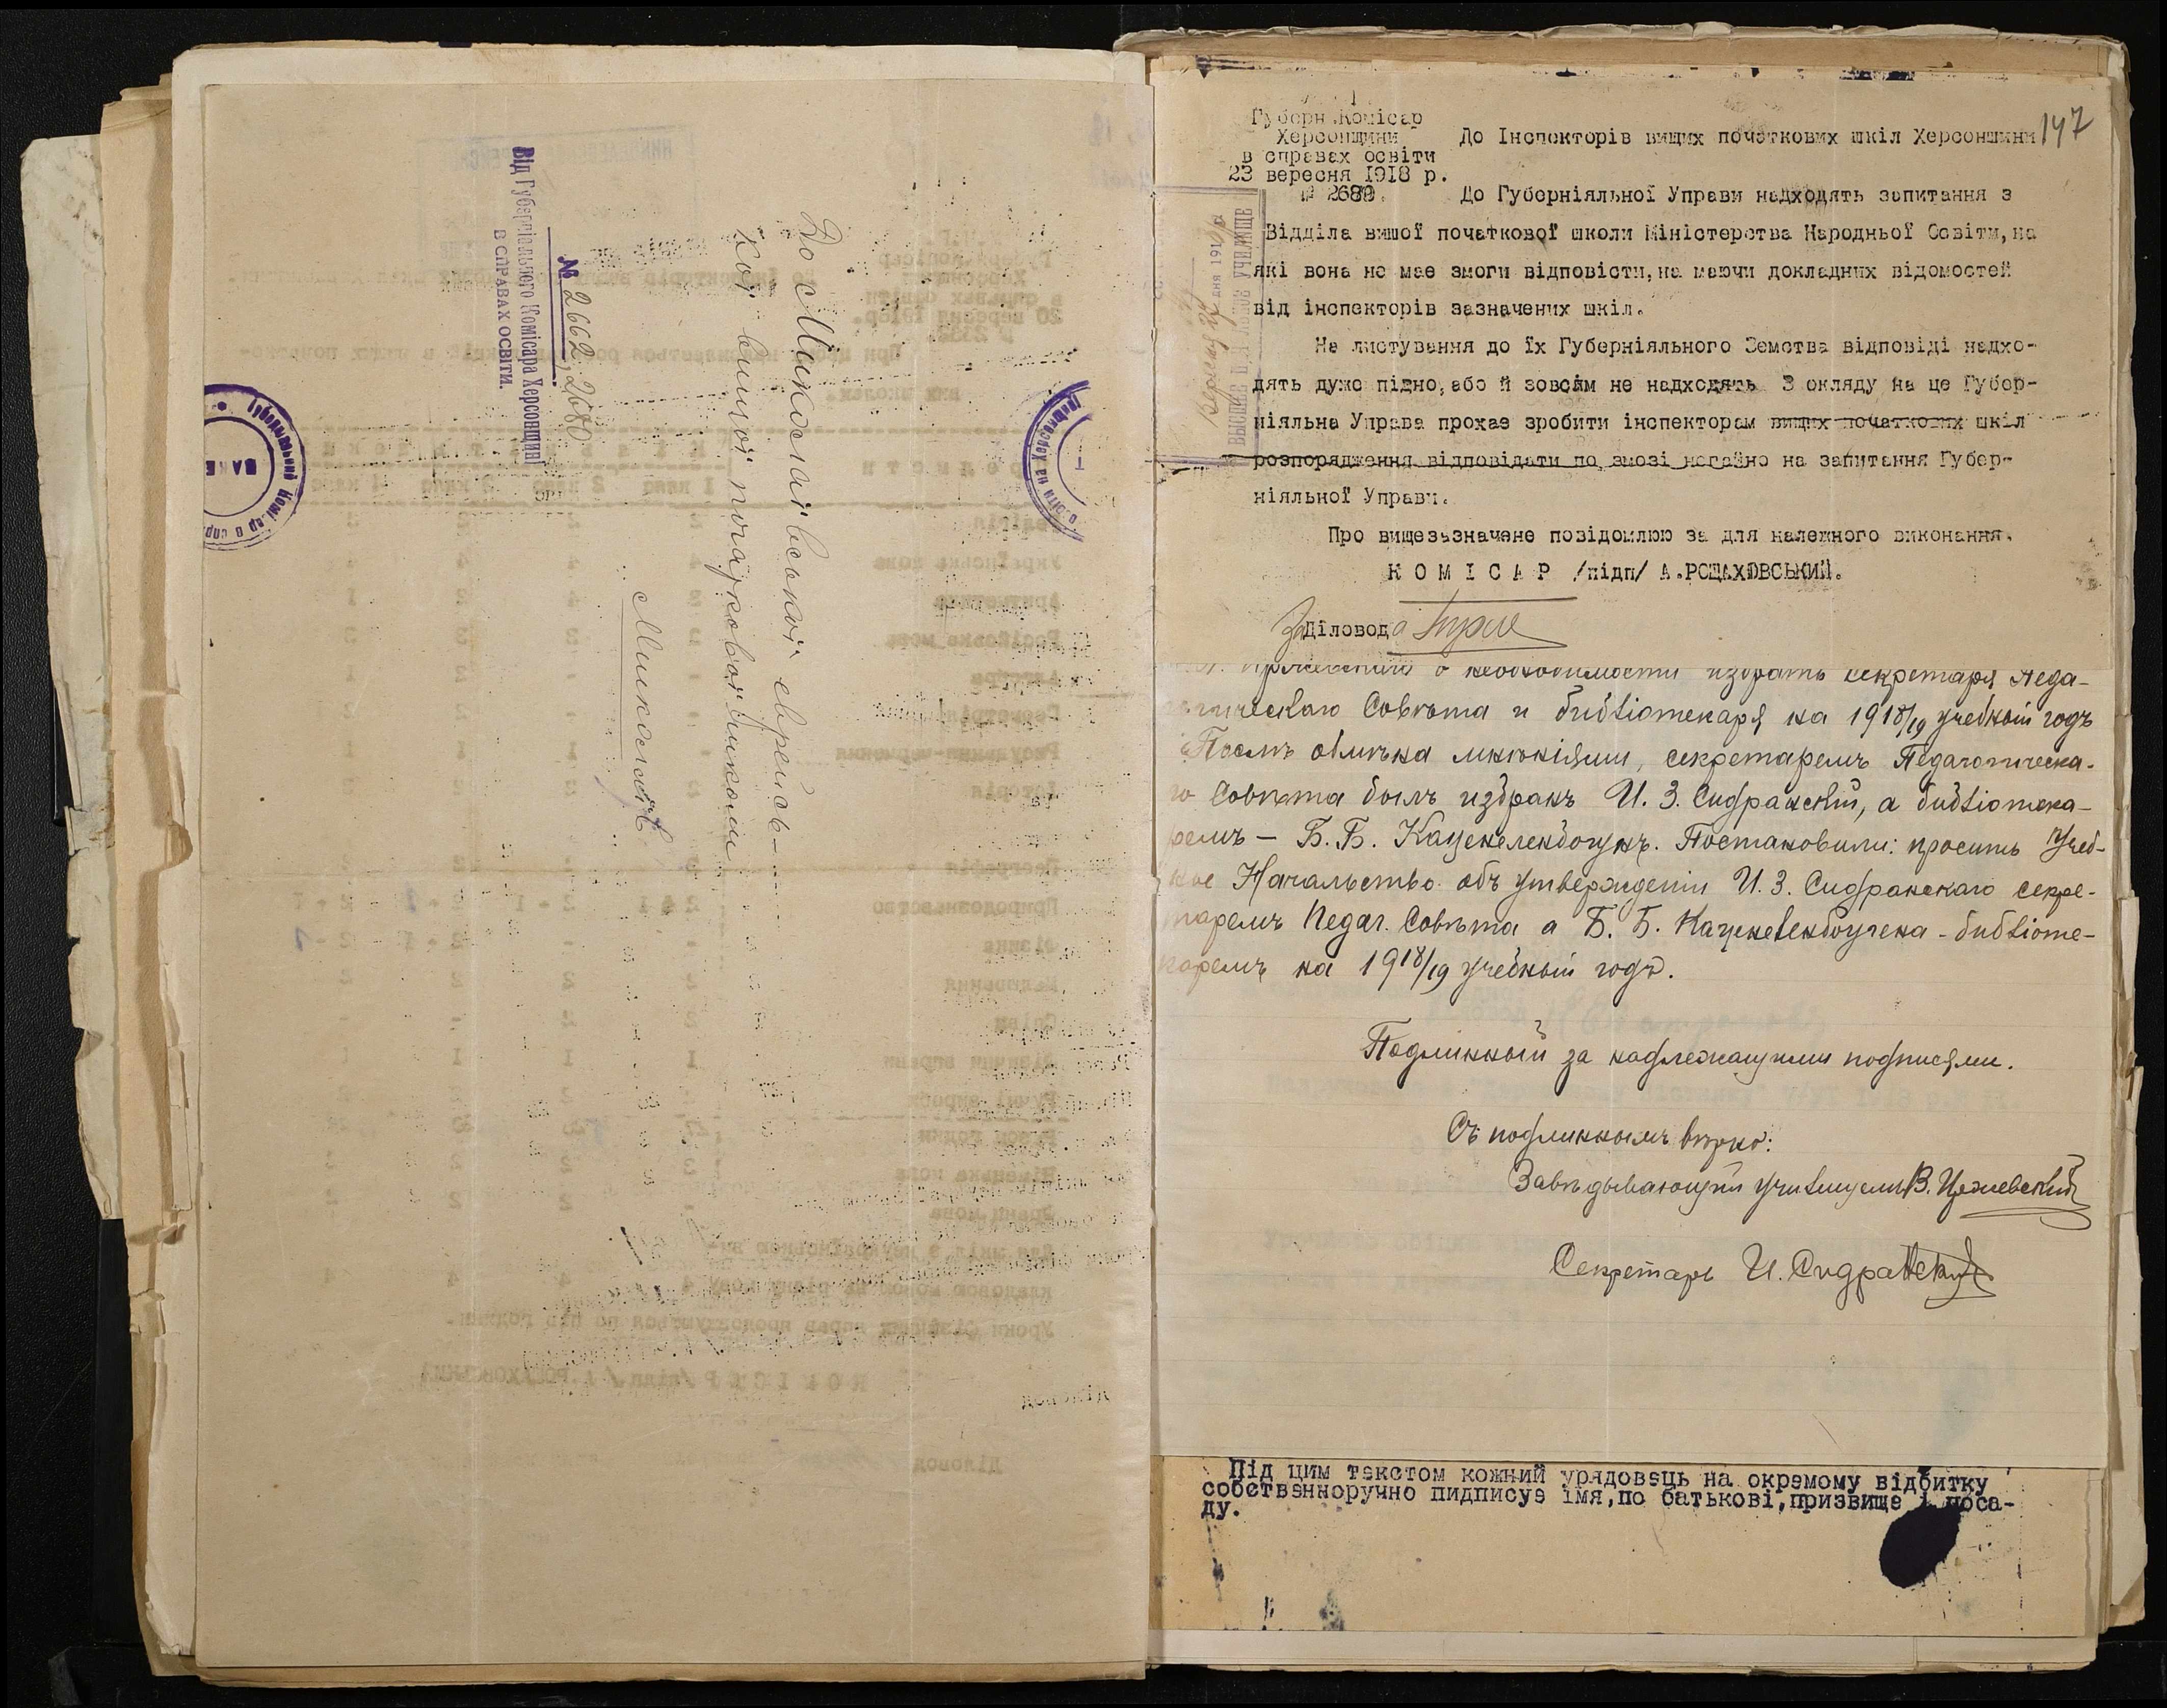 Від Губерніального Комісара Херсонщині
в справах освіти.
№ 2662, 2680
До Миколаївської єврейсь-
кої вищої початкової школи
Миколаїв
147
Губерн.Комісар
Херсонщини
в справах освіти
23 вересня 1918 р.
№ 2689.
До Інспекторів вищих початкових шкіл Херсонщини
До Губерніяльної Управи надходять запитання з
Відділа вишої початкової школи Міністерства Народньої Освіти, на
які вона не має змоги відповісти, на маючи докладних відомостей
від інспекторів зазначених шкіл.
На листування до їх Губерніяльного Земства відповіді надхо-
дять дуже підно, або й зовсім не надходять З огляду на це Губер-
ніяльна Управа прохає зробити інспекторам вищих початкових шкіл
розпорядження відповідати по змозі негайно на запитання Губер-
ніяльної Управи.
Про вищезазначене повідомлюю за для належного виконання.
К О М І С А Р /підп/ А.РОЩАХОВСЬКИЙ.
За Діловода
о необходимости избрать секретаря Педа-
гогическаго Совѣта и библіотекаря на 1918/19 учебный годъ
Послѣ обмѣна мнѣніями, секретаремъ Педагогическа-
го Совѣта былъ избранъ И. З. Сидранскій, а библіотека-
ремъ — Б. Б. Каценеленбоценъ. Постановили: просить Учеб-
ное Начальство объ утвержденіи И. З. Сидранскаго секре-
таремъ Педаг. Совѣта а Б. Б. Каценеленбоугена - библіоте-
каремъ на 1918/19 учебный годъ.
Подлинный за надлежащими подписями.
Съ подлиннымъ вѣрно:
Завѣдывающій училищемъ В. Цежевскій
Секретарь И. Сидранскій
Під цим текстом кожний урядовець на окремому відбитку
собственноручно пидписує імя, по батькові, призвище і поса-
ду.